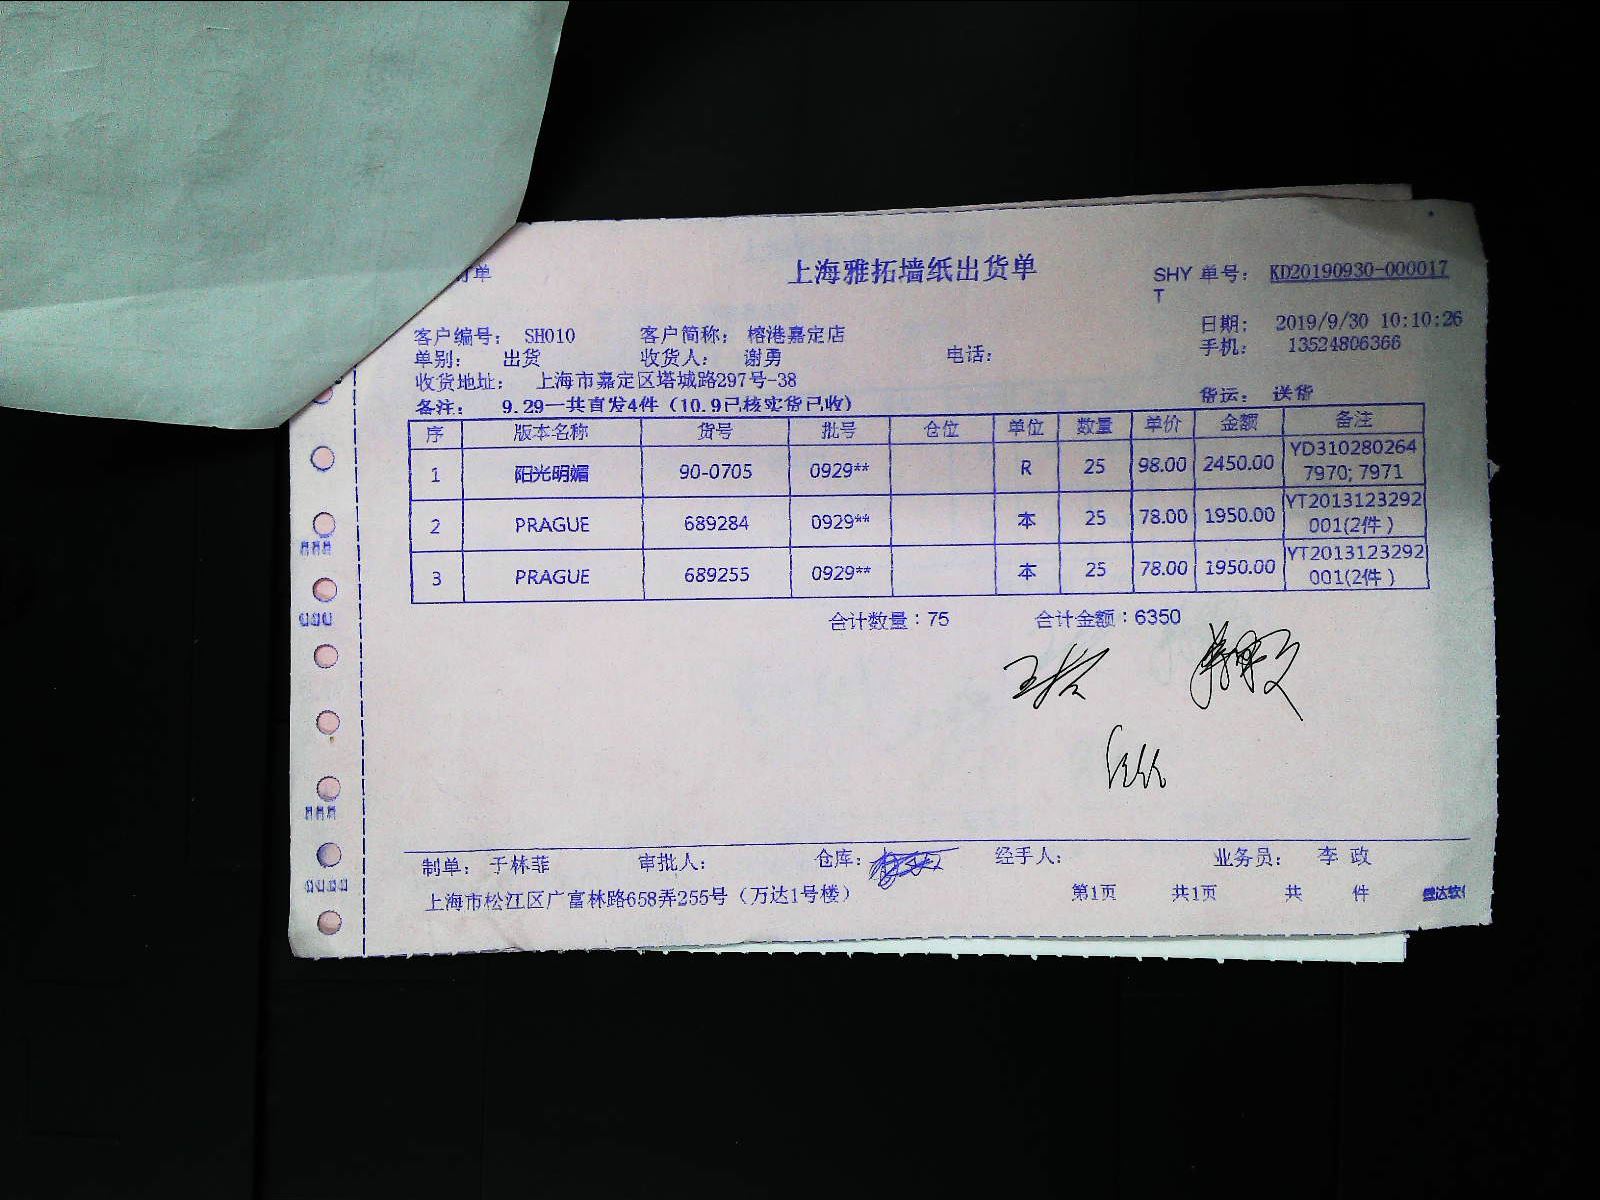 订单 上海雅拓墙纸出货单 SHYT 单号： KD20190930-000017
日期： 2019/9/30 10:10:26
客户编号： SH010 客户简称： 榕港嘉定店
手机： 13524806366
单别： 出货 收货人： 谢勇 电话：
收货地址： 上海市嘉定区塔城路297号-38
货运： 送货
备注： 9.29一共直发4件（10.9已核实货已收）
序 版本名称 货号 批号 仓位 单位 数量 单价 金额 备注
1 阳光明媚 90-0705 0929** R 25 98.00 2450.00 YD3102802647970; 7971
2 PRAGUE 689284 0929** 本 25 78.00 1950.00 YT2013123292001(2件)
3 PRAGUE 689255 0929** 本 25 78.00 1950.00 YT2013123292001(2件)
合计数量：75 合计金额：6350
制单： 于林菲 审批人： 仓库： 经手人： 业务员： 李 政
上海市松江区广富林路658弄255号（万达1号楼） 第1页 共1页 共 件